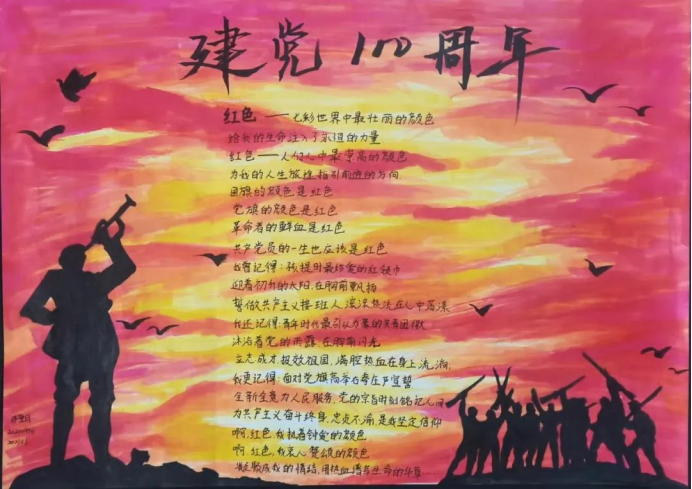 建党100周年
红色——七彩世界中最壮丽的颜色
给我的生命注入了永恒的力量
红色——人们心中最崇高的颜色
为我的人生旅途指引前进的方向
国旗的颜色是红色
党旗的颜色是红色
革命者的鲜血是红色
共产党员的一生也应该是红色
我曾记得:孩提时最珍爱的红领巾
迎着初升的太阳,在胸前飘扬
誓做共产主义接班人,滚滚热流在心中荡漾
我还记得:青年时代最引以为豪的共青团徽
沐浴着党的雨露,在胸前闪光
立志成才,报效祖国,满腔热血在身上流淌
我更记得:面对党旗高举右拳庄严宣誓
全新全意为人民服务,党的宗旨时刻铭记心间
为共产主义奋斗终身,忠贞不渝,是我坚定信仰
啊,红色,我执着钟爱的颜色
啊,红色,我衷心赞颂的颜色
凝聚成我的情结,用热血谱写生命的华章